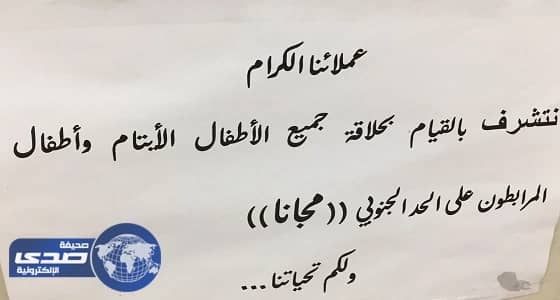 عملائنا الكرام
نتشرف بالقيام بحلاقة جميع الأطفال الأيتام وأطفال
المرابطون على الحد الجنوبي ((مجانا))
ولكم تحياتنا...
صحيفة
صدى
الإلكترونية